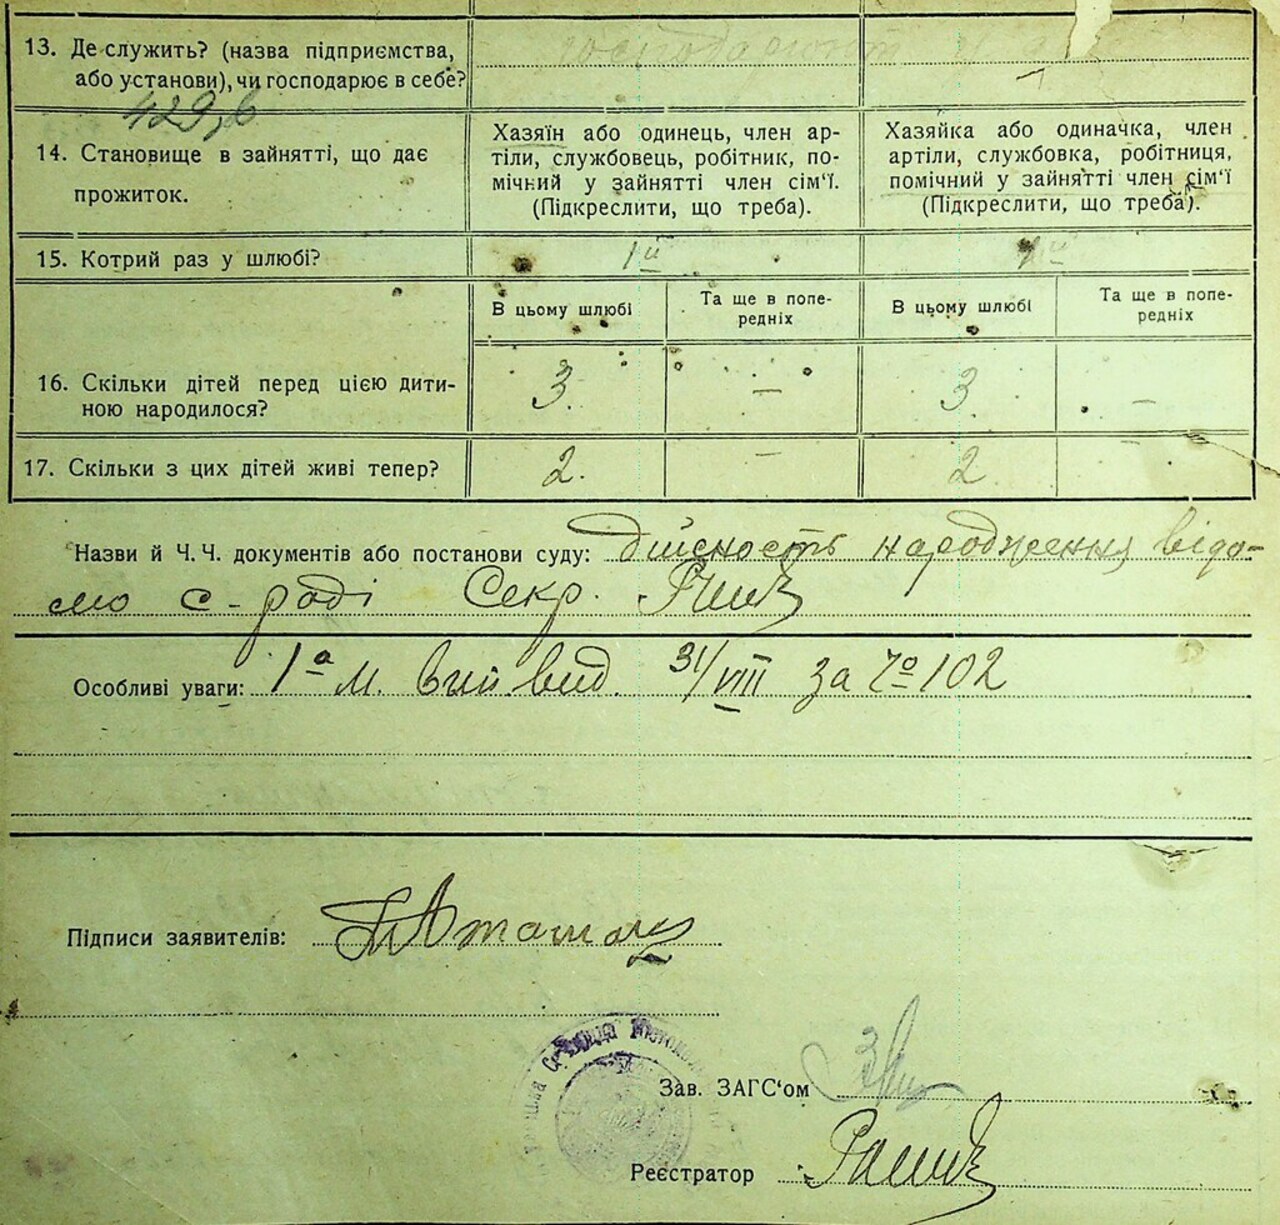 13. Де служить? (назва підприємства,
або установи), чи господарює в себе?
429,в
14. Становище в зайнятті, що дає
прожиток.
Хазяїн або одинець, член ар-
тіли, службовець, робітник, по-
мічний у зайнятті член сім‘ї.
(Підкреслити, що треба).
Хазяйка або одиначка, член
артіли, службовка, робітниця,
помічний у зайнятті член сім‘ї
(Підкреслити, що треба).
15. Котрий раз у шлюбі? 1й 1й
В цьому шлюбі
Та ще в попе-
редніх
В цьому шлюбі
Та ще в попе-
редніх
16. Скільки дітей перед цією дити-
ною народилося?
3. — 3. —
17. Скільки з цих дітей живі тепер? 2. — 2 —
Назви й Ч. Ч. документів або постанови суду: дійсность народження відо-
мо с-раді Секр.
Особливі уваги: 1а м. вид. 31/VIII за № 102
Підписи заявителів:
Зав. ЗАГС‘ом
Реєстратор